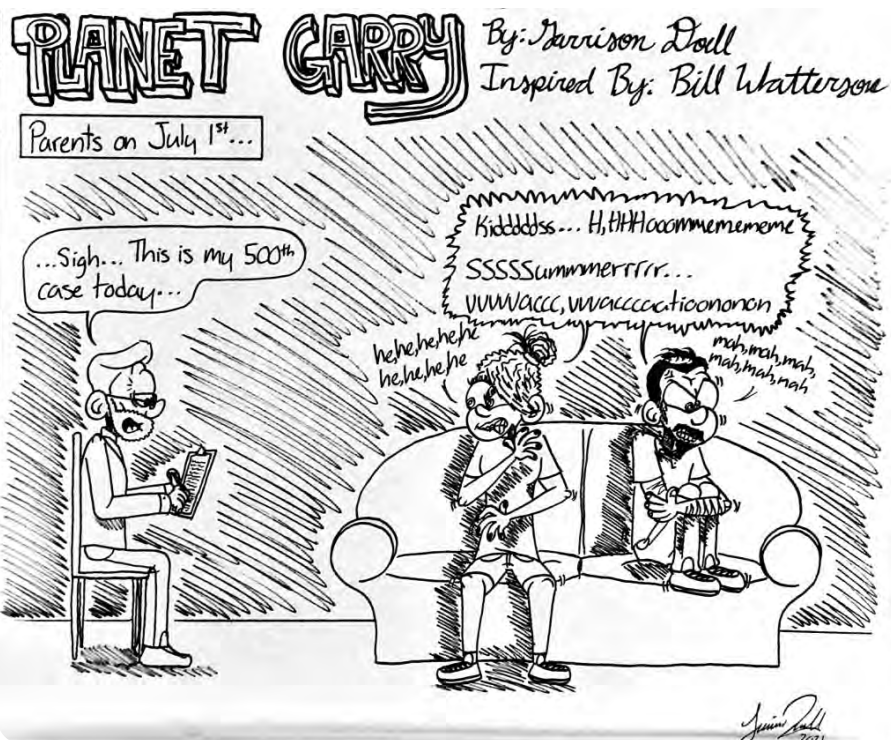 PLANET GARRY
By: Garrison Doll
Inspired By: Bill Watterson
Parents on July 1st...
...Sigh... This is my 500th
case today...
Kidddddss... H,HHHooommemememe
SSSSSummmerrrrr...
vvvvVaccc, vvvaccccaatioononon
he,he,he,he,he
he,he,he,he
mah,mah,mah,
mah,mah,nah
2021